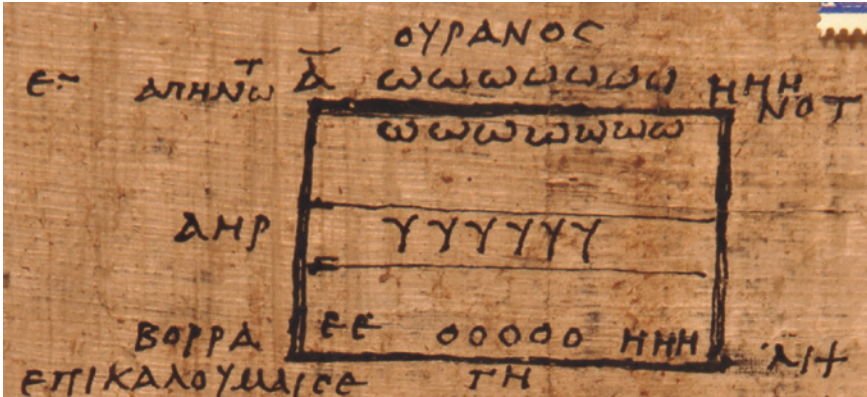 ΟΥΡΑΝΟϹ
Ε- ΑΠΗΝωΤ Α̅ ωωωωωωω ΗΗΗ
ΝΟΤ
ωωωωωωω
ΑΗΡ ΥΥΥΥΥΥ
ΒΟΡΡΑ ΕΕ ΟΟΟΟΟ ΗΗΗ ΛΙΨ
ΕΠΙΚΑΛΟΥΜΑΙϹΕ ΓΗ